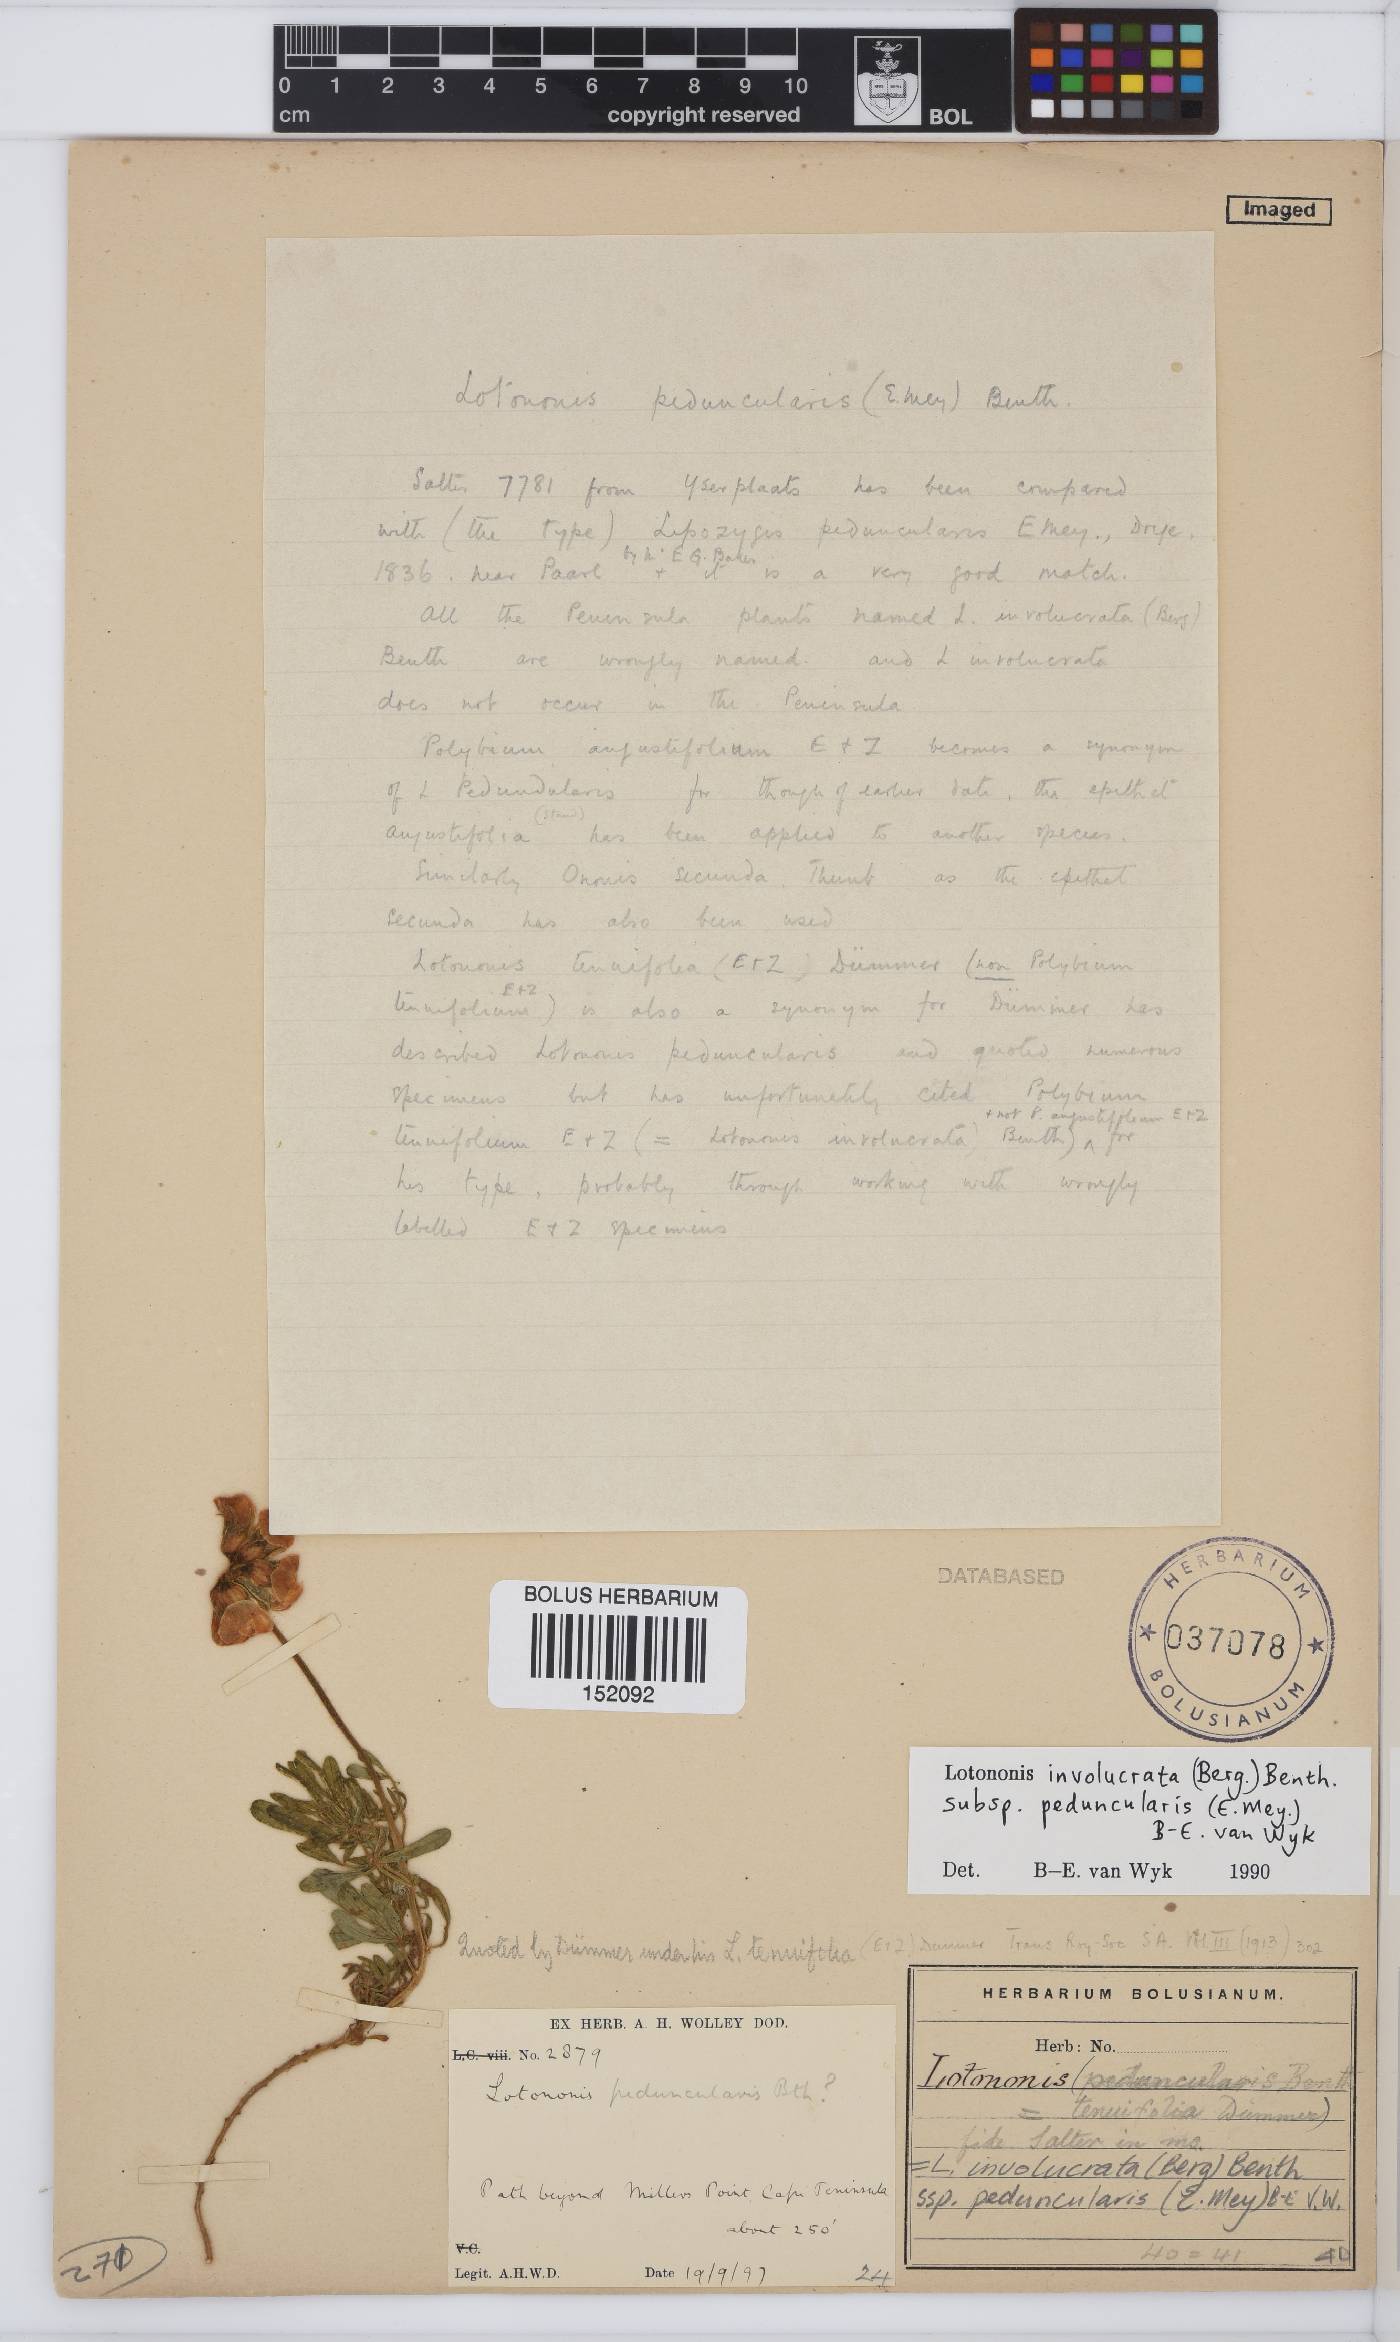 0 1 2 3 4 5 6 7 8 9 10
cm
copyright reserved
BOL
Imaged
Lotononis peduncularis (E. Mey) Benth.
Salter 7781 from Yserplaats has been compared
with (the type) Lipozygis peduncularis E Mey., Drège.
by Mr E G. Baker
1836. near Paarl + it is a very good match.
All the Peninsula plants named L. involucrata (Berg)
Benth are wrongly named. and L involucrata
does not occur in the Peninsula
Polybium angustifolium E + Z becomes a synonym
of L Pedundularis for though of earlier date, the epithet
angustifolia (Steud) has been applied to another species.
Similarly Ononis secunda Thunb as the epithet
secunda has also been used
Lotononis tenuifolia (E+Z) Dümmer (non Polybium
tenuifolium E+Z) is also a synonym for Dümmer has
described Lotononis peduncularis and quoted numerous
specimens but has unfortunately cited Polybium
+ not P. angustifolium E+Z
tenuifolium E + Z (= Lotononis involucrata Benth) ^ for
his type, probably through working with wrongly
labelled E + Z specimens
DATABASED
BOLUS HERBARIUM
152092
HERBARIUM
037078
BOLUSIANUM
Lotononis involucrata (Berg.) Benth.
subsp. peduncularis (E. Mey.)
B-E. van Wyk
Det. B–E. van Wyk 1990
Quoted by Dümmer under his L. tenuifolia (E+Z) Dummer Trans Roy-Soc S A. Vol III (1913) 302
EX HERB. A. H. WOLLEY DOD.
L.C. viii. No. 2879
Lotononis peduncularis Bth?
Path beyond Millers Point, Cape Peninsula
about 250'
V.C.
Legit. A.H.W.D. Date 19/9/97
24
HERBARIUM BOLUSIANUM.
Herb: No.
Lotononis (peduncularis Benth
= tenuifolia Dümmer)
fide Salter in ms.
= L. involucrata (Berg) Benth
ssp. peduncularis (E. Mey) B-E V.W.
40 = 41 40
271